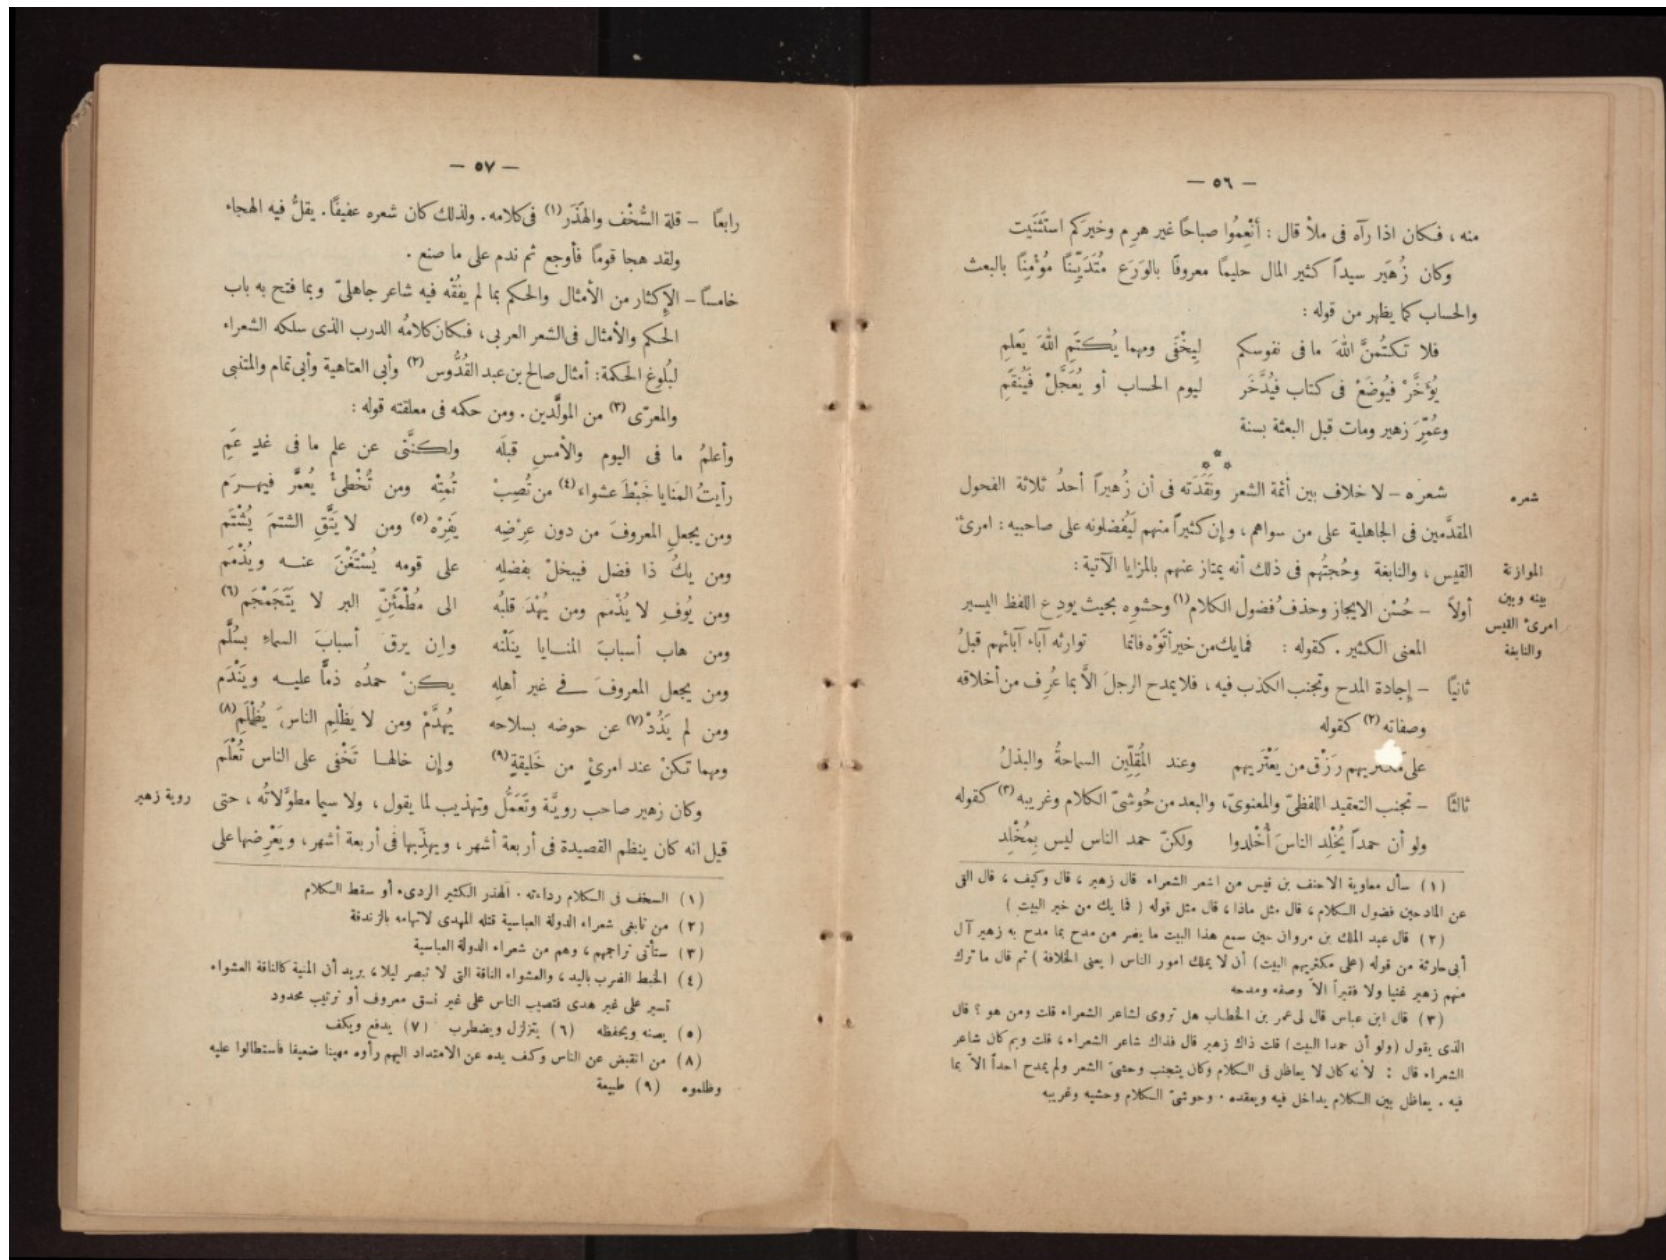 — ٥٦ —
منه ، فكان اذا رآه فى ملأ قال : أنْعِمُوا صباحًا غير هرِم وخيرَكم استَثنَيت
وكان زُهَير سيداً كثير المال حليمًا معروفًا بالوَرَع مُتَدَيِّنًا مُؤْمِنًا بالبعث
والحساب كما يظهر من قوله :
فلا تكتُمنَّ اللهَ ما فى نفوسكم ليخْفَى ومهما يُكتَمِ اللهَ يَعلمِ
يُؤَخَّرْ فيُوضَعْ فى كتاب فيُدَّخَر ليوم الحساب أو يُعَجَّلْ فَيُنقَمِ
وعُمِّرَ زهير ومات قبل البعثة بسنة
* * *
شعره
شعره – لا خلاف بين أئمة الشعر ونَقَدَته فى أن زُهيراً أحدُ ثلاثة الفحول
المقدَّمين فى الجاهلية على من سواهم ، وإن كثيراً منهم لَيُفضلونه على صاحبيه : امرئ
الموازنة
بينه وبين
امرئ القيس
والنابغة
القيس ، والنابغة وحُجتُهم فى ذلك أنه يمتاز عنهم بالمزايا الآتية :
أولاً – حُسْن الايجاز وحذف فُضول الكلام (١) وحشوِه بحيث يودِع اللفظ اليسير
المعنى الكثير . كقوله : فما يك من خير أتَوْه فانما توارثه آباء آبائهم قبلُ
ثانيًا – إجادة المدح وتجنب الكذب فيه ، فلا يمدح الرجلَ الاَّ بما عُرِف من أخلاقه
وصفاته (٢) كقوله
على مكثريهم رَزْق من يَعْتَريهم وعند المُقِلِّين السماحةُ والبذلُ
ثالثًا – تجنب التعقيد اللفظىّ والمعنوىّ، والبعد من حُوشىّ الكلام وغريبه (٣) كقوله
ولو أن حمداً يُخْلِد الناسَ أُخْلدوا ولكنّ حمد الناس ليس بِمُخْلِد
(١) سأل معاوية الاحنف بن قيس من اشعر الشعراء قال زهير ، قال وكيف ، قال القى
عن المادحين فضول الكلام ، قال مثل ماذا ، قال مثل قوله ( فما يك من خير البيت )
(٢) قال عبد الملك بن مروان حين سمع هذا البيت ما يضر من مدح بما مدح به زهير آل
أبى حارثة من قوله (على مكثريهم البيت) أن لا يملك امور الناس ( يعنى الخلافة ) ثم قال ما ترك
منهم زهير غنيا ولا فقيراً الاّ وصفه ومدحه
(٣) قال ابن عباس قال لى عمر بن الخطاب هل تروى لشاعر الشعراء قلت ومن هو ؟ قال
الذى يقول (ولو أن حمدا البيت) قلت ذاك زهير قال فذاك شاعر الشعراء ، قلت وبم كان شاعر
الشعراء قال : لأنه كان لا يعاظل فى الكلام وكان يتجنب وحشىّ الشعر ولم يمدح احداً الاّ بما
فيه . يعاظل بين الكلام يداخل فيه ويعقده . وحوشىّ الكلام وحشيه وغريبه
— ٥٧ —
رابعًا – قلة السُّخْف والهَذَر (١) فى كلامه . ولذلك كان شعره عفيفًا . يقلُّ فيه الهجاء
ولقد هجا قومًا فأوجع ثم ندم على ما صنع .
خامسًا – الإكثار من الأمثال والحكم بما لم يفُقْه فيه شاعر جاهلىّ وبما فتح به باب
الحكم والأمثال فى الشعر العربى ، فكان كلامُه الدرب الذى سلكه الشعراء
لبُلوغ الحكمة : أمثال صالح بن عبد القُدُّوس (٢) وأبى العتاهية وأبى تمام والمتنبى
والمعرّى (٣) من المولَّدين . ومن حكمه فى معلقته قوله :
وأعلمُ ما فى اليوم والأمسِ قبلَه ولكنَّنى عن علم ما فى غدٍ عَمِ
رأيتُ المنايا خَبْطَ عشواء (٤) من تُصِبْ تُمِتْه ومن تُخْطئْ يُعمَّر فيهرَم
ومن يجعلِ المعروفَ من دون عِرْضِه يَفِرْه (٥) ومن لا يَتَّقِ الشتمَ يُشْتَم
ومن يكُ ذا فضل فيبخلْ بفضلِه على قومه يُسْتَغْنَ عنه ويُذْمَم
ومن يُوفِ لا يُذْمَم ومن يُهْدَ قلبُه الى مُطْمَئِنّ البر لا يَتَجَمْجَم (٦)
ومن هاب أسبابَ المنايا ينَلْنه وإن يرقَ أسبابَ السماءِ بسُلَّم
ومن يجعل المعروفَ فى غير أهلِه يكنْ حمدُه ذمًّا عليه ويَنْدَم
ومن لم يَذُدْ (٧) عن حوضه بسلاحه يُهدَّمْ ومن لا يَظْلِمِ الناسَ يُظْلَمِ (٨)
ومهما تكنْ عند امرئٍ من خَليقةٍ (٩) وإن خالها تَخْفى على الناس تُعْلَم
روية زهير
وكان زهير صاحب رويَّة وتَعَمُّل وتهذيب لما يقول ، ولا سيما مطوَّلاتُه ، حتى
قيل انه كان ينظم القصيدة فى أربعة أشهر ، ويهذِّبها فى أربعة أشهر ، ويَعْرِضها على
(١) السخف فى الكلام رداءته . الهذر الكثير الردىء أو سقط الكلام
(٢) من نابغى شعراء الدولة العباسية قتله المهدى لاتهامه بالزندقة
(٣) ستأتى تراجمهم ، وهم من شعراء الدولة العباسية
(٤) الخبط الضرب باليد ، والعشواء الناقة التى لا تبصر ليلا ، يريد أن المنية كالناقة العشواء
تسير على غير هدى فتصيب الناس على غير نسق معروف أو ترتيب محدود
(٥) يصنه ويحفظه (٦) يتزلزل ويضطرب (٧) يدفع ويكف
(٨) من انقبض عن الناس وكف يده عن الامتداد اليهم رأوه مهينا ضعيفا فاستطالوا عليه
وظلموه (٩) طبيعة